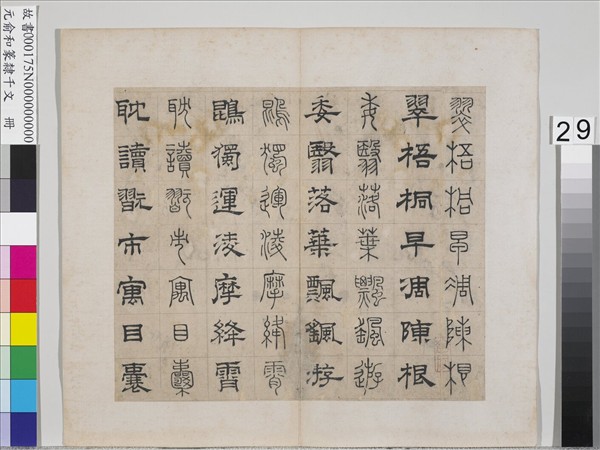 翠梧桐早凋陳根
翠梧桐早凋陳根
委翳落葉飄颻游
委翳落葉飄颻游
鵾獨運凌摩絳霄
鵾獨運凌摩絳霄
耽讀翫市寓目囊
耽讀翫市寓目囊
故書000175N000000000
元俞和篆隸千文 冊
29